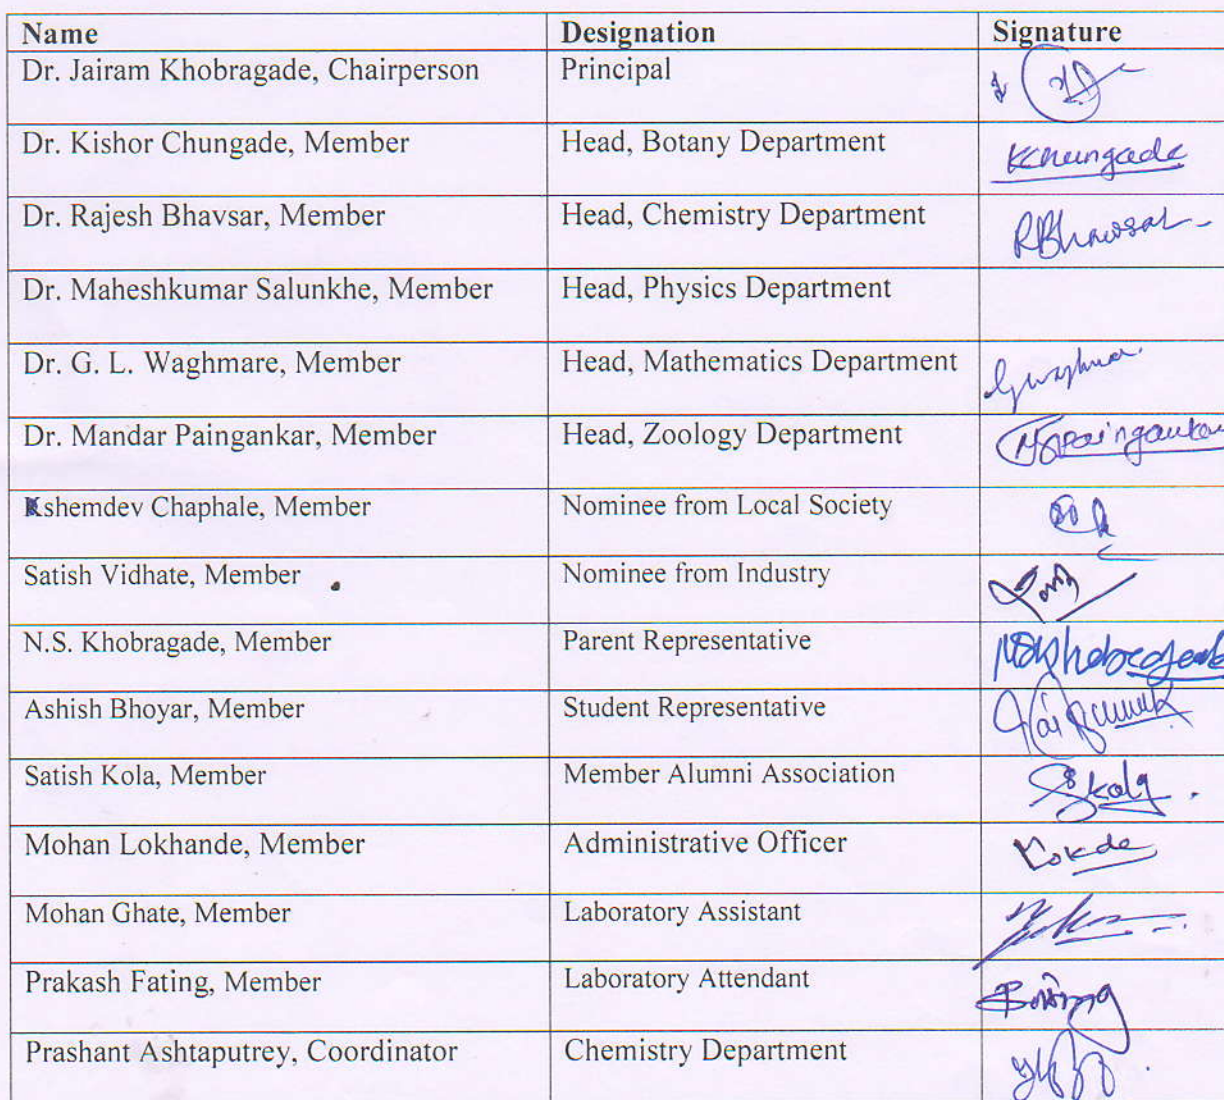 Name Designation Signature
Dr. Jairam Khobragade, Chairperson Principal
Dr. Kishor Chungade, Member Head, Botany Department Kchungade
Dr. Rajesh Bhavsar, Member Head, Chemistry Department RBhavsar
Dr. Maheshkumar Salunkhe, Member Head, Physics Department
Dr. G. L. Waghmare, Member Head, Mathematics Department
Dr. Mandar Paingankar, Member Head, Zoology Department
Kshemdev Chaphale, Member Nominee from Local Society
Satish Vidhate, Member Nominee from Industry
N.S. Khobragade, Member Parent Representative
Ashish Bhoyar, Member Student Representative
Satish Kola, Member Member Alumni Association
Mohan Lokhande, Member Administrative Officer
Mohan Ghate, Member Laboratory Assistant
Prakash Fating, Member Laboratory Attendant
Prashant Ashtaputrey, Coordinator Chemistry Department